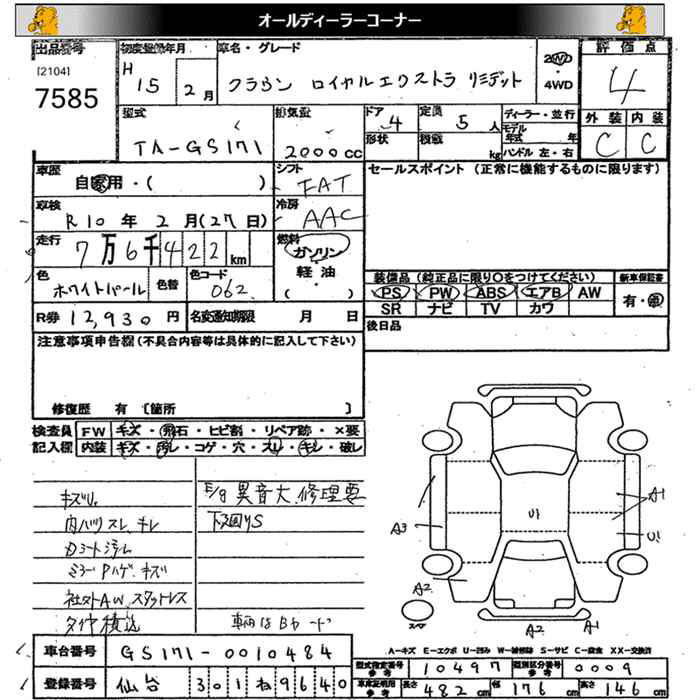 オールディーラーコーナー
出品番号 初度登録年月 車名・グレード 評価点
[2104] H 15年 2月 クラウン ロイヤルエクストラ リミテッド 2WD・4WD 4
7585
型式 排気量 ドア 定員 ディーラー・並行 外装 内装
TA-GS171 2000cc 4 5人 モデル年式 年 C C
形状 積載 kg ハンドル 左・右
車歴 シフト セールスポイント (正常に機能するものに限ります)
自家用・( ) FAT
車検 冷房
R10年2月(27日) AAC
走行 燃料
7万6千422km ガソリン
軽油
( )
色 色替 色コード 装備品 (純正品に限り〇をつけてください) 新車保証書
ホワイトパール 062 PS PW ABS エアB AW 有・無
SR ナビ TV カワ
R券 12,930円 名変通知期限 月 日 後日品
注意事項申告欄(不具合内容等は具体的に記入して下さい)
修復歴 有 [箇所 ]
検査員 FW キズ・飛石・ヒビ割・リペア跡・×要
記入欄 内装 キズ・汚レ・コゲ・穴・スレ・キレ・破レ
キズU. E/g異音大 修理要
内ハンスレ、キレ 下回りS
カミート汚ム
ミラーPハゲ、キズ
社外AW、スタットレス
タイヤ積込 車両はBヤード
A1
U1
U1
A3
A2
A2
A1
スペア
A-キズ E-エクボ U-凹み W-補修跡 S-サビ C-腐食 XX-交換済
車台番号 GS171-0010484
登録番号 仙台 301 ね 9640
型式指定番号 参考 10497 類別区分番号 参考 0009
車庫証明用 参考 長さ 482cm 幅 176cm 高さ 146cm